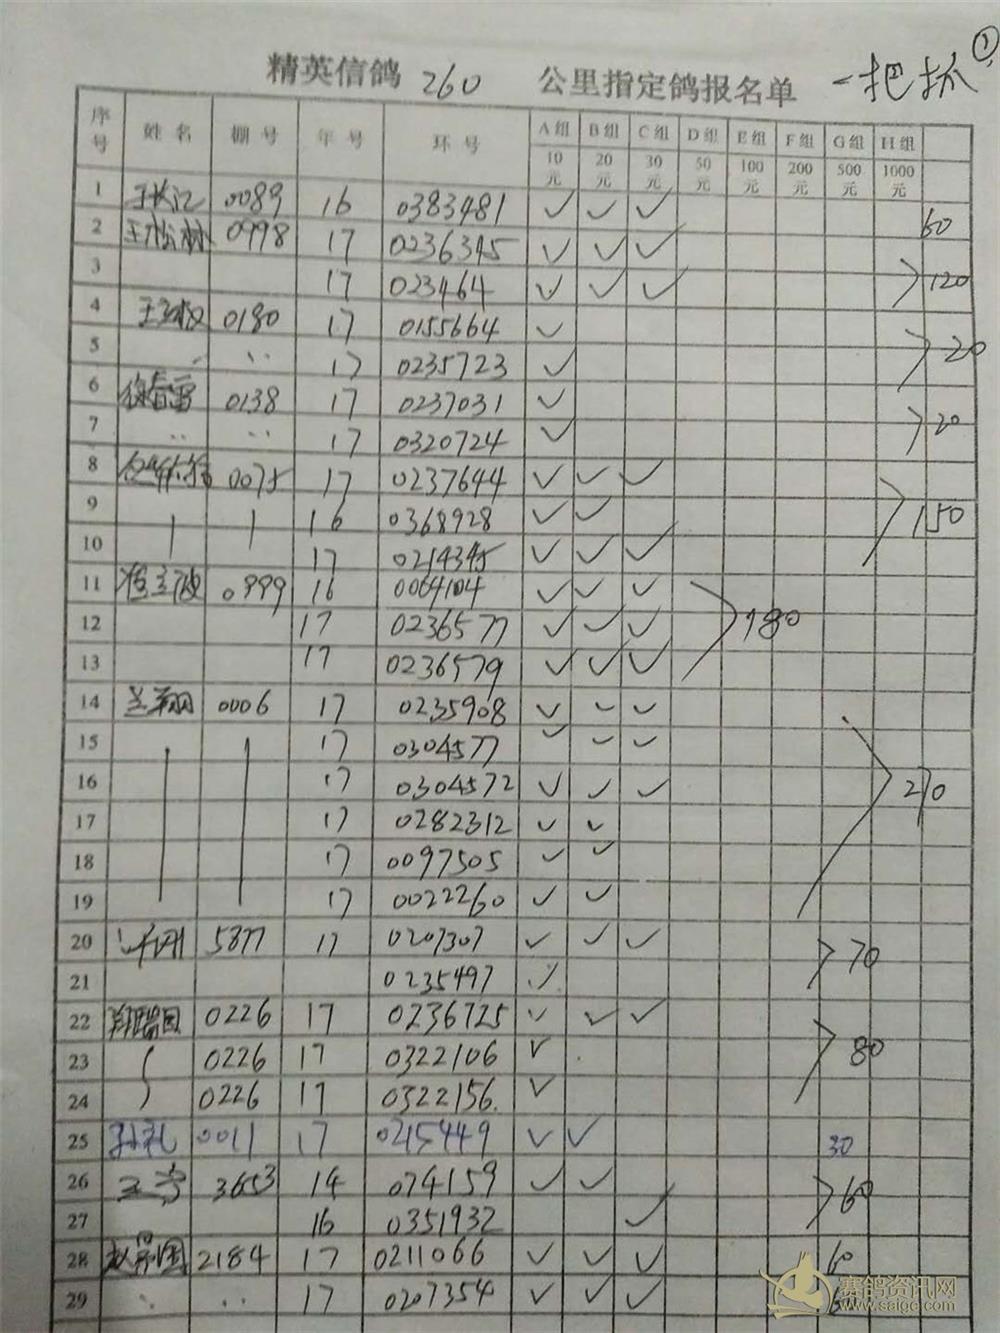 ①
精英信鸽 260 公里指定鸽报名单 一把抓
序号 姓名 棚号 年号 环号 A组 B组 C组 D组 E组 F组 G组 H组
10元 20元 30元 50元 100元 200元 500元 1000元
1 王长江 0089 16 0383481 ✓ ✓ ✓ 60
2 王松林 0998 17 0236345 ✓ ✓ ✓
3 17 023464 ✓ ✓ ✓ 120
4 0180 17 0155664 ✓
5 17 0235723 ✓ 20
6 徐春雷 0138 17 0237031 ✓
7 17 0320724 ✓ 20
8 0075 17 0237644 ✓ ✓ ✓
9 16 0368928 ✓ ✓ 150
10 17 0214345 ✓ ✓ ✓
11 0999 16 0064104 ✓ ✓ ✓
12 17 0236577 ✓ ✓ ✓ 180
13 17 0236579 ✓ ✓ ✓
14 兰翔 0006 17 0235908 ✓ ✓ ✓
15 17 0304577 ✓ ✓ ✓
16 17 0304572 ✓ ✓ ✓ 270
17 17 0282312 ✓ ✓
18 17 0097505 ✓ ✓
19 17 0022260 ✓ ✓
20 5877 17 0207307 ✓ ✓ ✓ 70
21 0235497 ✓
22 0226 17 0236725 ✓ ✓ ✓
23 0226 17 0322106 ✓ 80
24 0226 17 0322156 ✓
25 孙礼 0011 17 0215449 ✓ ✓ 30
26 3653 14 074159 ✓ ✓ 60
27 16 0351932 ✓
28 2184 17 0211066 ✓ ✓ ✓ 60
29 17 0207354 ✓ ✓ ✓
赛鸽资讯网
www.saige.com